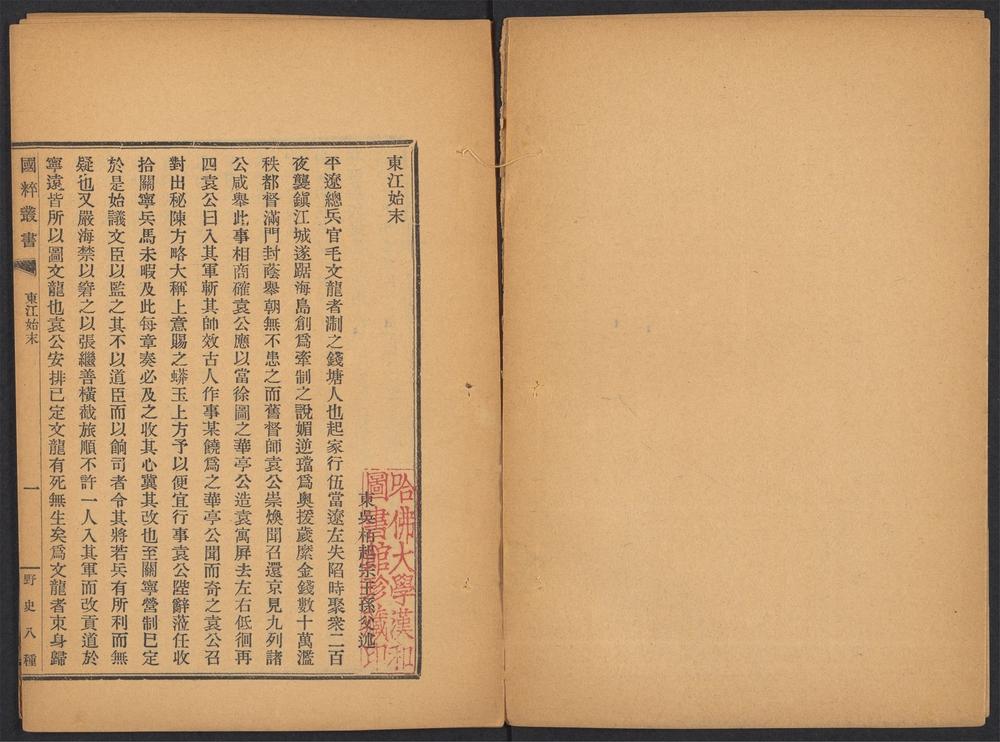 東江始末
東吳柏起宗玉孫父述
平遼總兵官毛文龍者淛之錢塘人也起家行伍當遼左失陷時聚衆二百
夜襲鎭江城遂踞海島創爲牽制之說媚逆璫爲奧援歲縻金錢數十萬濫
秩都督滿門封蔭舉朝無不患之而舊督師袁公崇煥聞召還京見九列諸
公咸舉此事相商確袁公應以當徐圖之華亭公造袁寓屏去左右低徊再
四袁公曰入其軍斬其帥效古人作事某饒爲之華亭公聞而奇之袁公召
對出秘陳方略大稱上意賜之蟒玉上方予以便宜行事袁公陛辭蒞任收
拾關寧兵馬未暇及此每章奏必及之收其心冀其改也至關寧營制已定
於是始議文臣以監之其不以道臣而以餉司者令其將若兵有所利而無
疑也又嚴海禁以窘之以張繼善橫截旅順不許一人入其軍而改貢道於
寧遠皆所以圖文龍也袁公安排已定文龍有死無生矣爲文龍者束身歸
國粹叢書
東江始末
一
野史八種
哈佛大學漢和
圖書館珍藏印